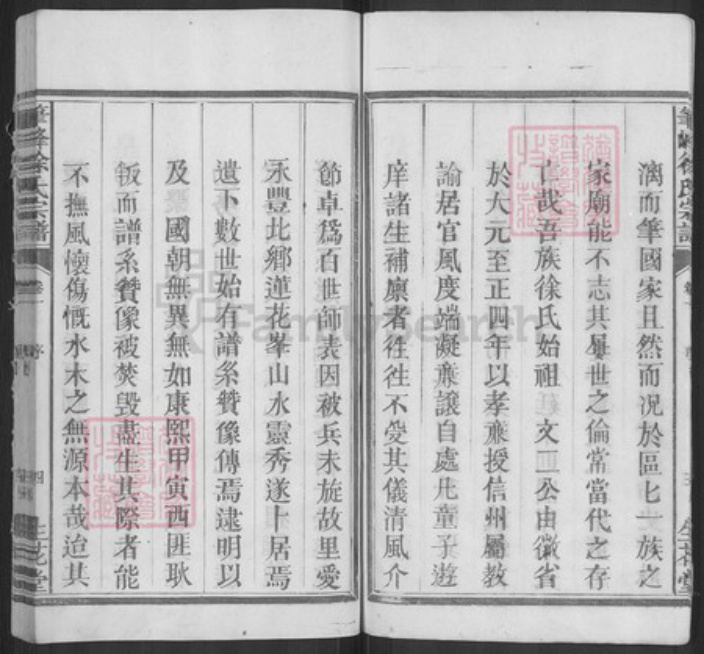 漓而筆國家且然而况於區匕一族之
家廟能不志其屢世之倫常當代之存
亡哉吾族徐氏始祖文二公由徽省
於大元至正四年以孝亷授信州屬教
諭居官風度端凝亷讓自處凡童子遊
庠諸生補廩者徃徃不受其儀清風介
節卓爲百世師表因被兵未旋故里愛
永豐北鄉蓮花峯山水靈秀遂卜居焉
遺下數世始有譜系贊像傳焉逮明以
及國朝無異無如康熙甲寅西匪耿
叛而譜系贊像被焚毁盡生其際者能
不撫風懷傷慨水木之無源本哉迨其
筆峰徐氏宗譜
卷一
序
四
生花堂
筆峰徐氏宗譜
生花堂
FamilySearch